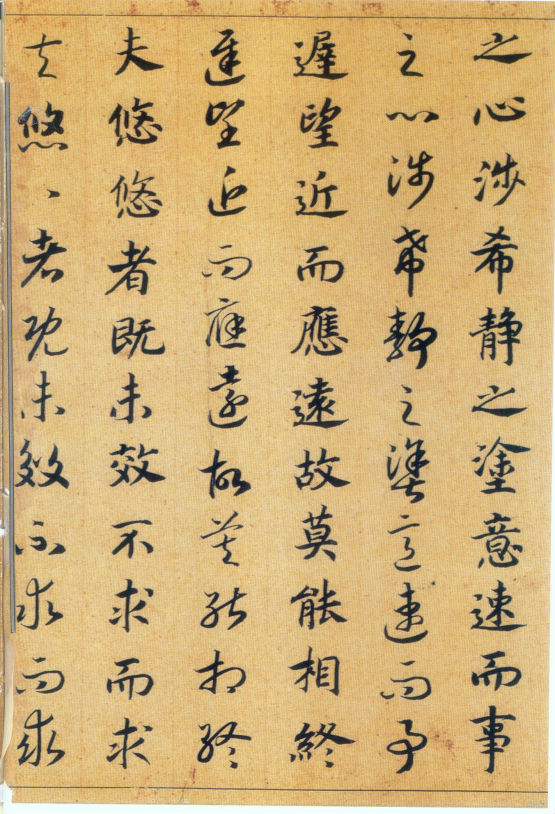 之心涉希静之塗意速而事
之心涉希靜之塗意速而事
遲望近而應遠故莫能相終
遲望近而應遠故莫能相終
夫悠悠者既未效不求而求
夫悠〻者既未效不求而求